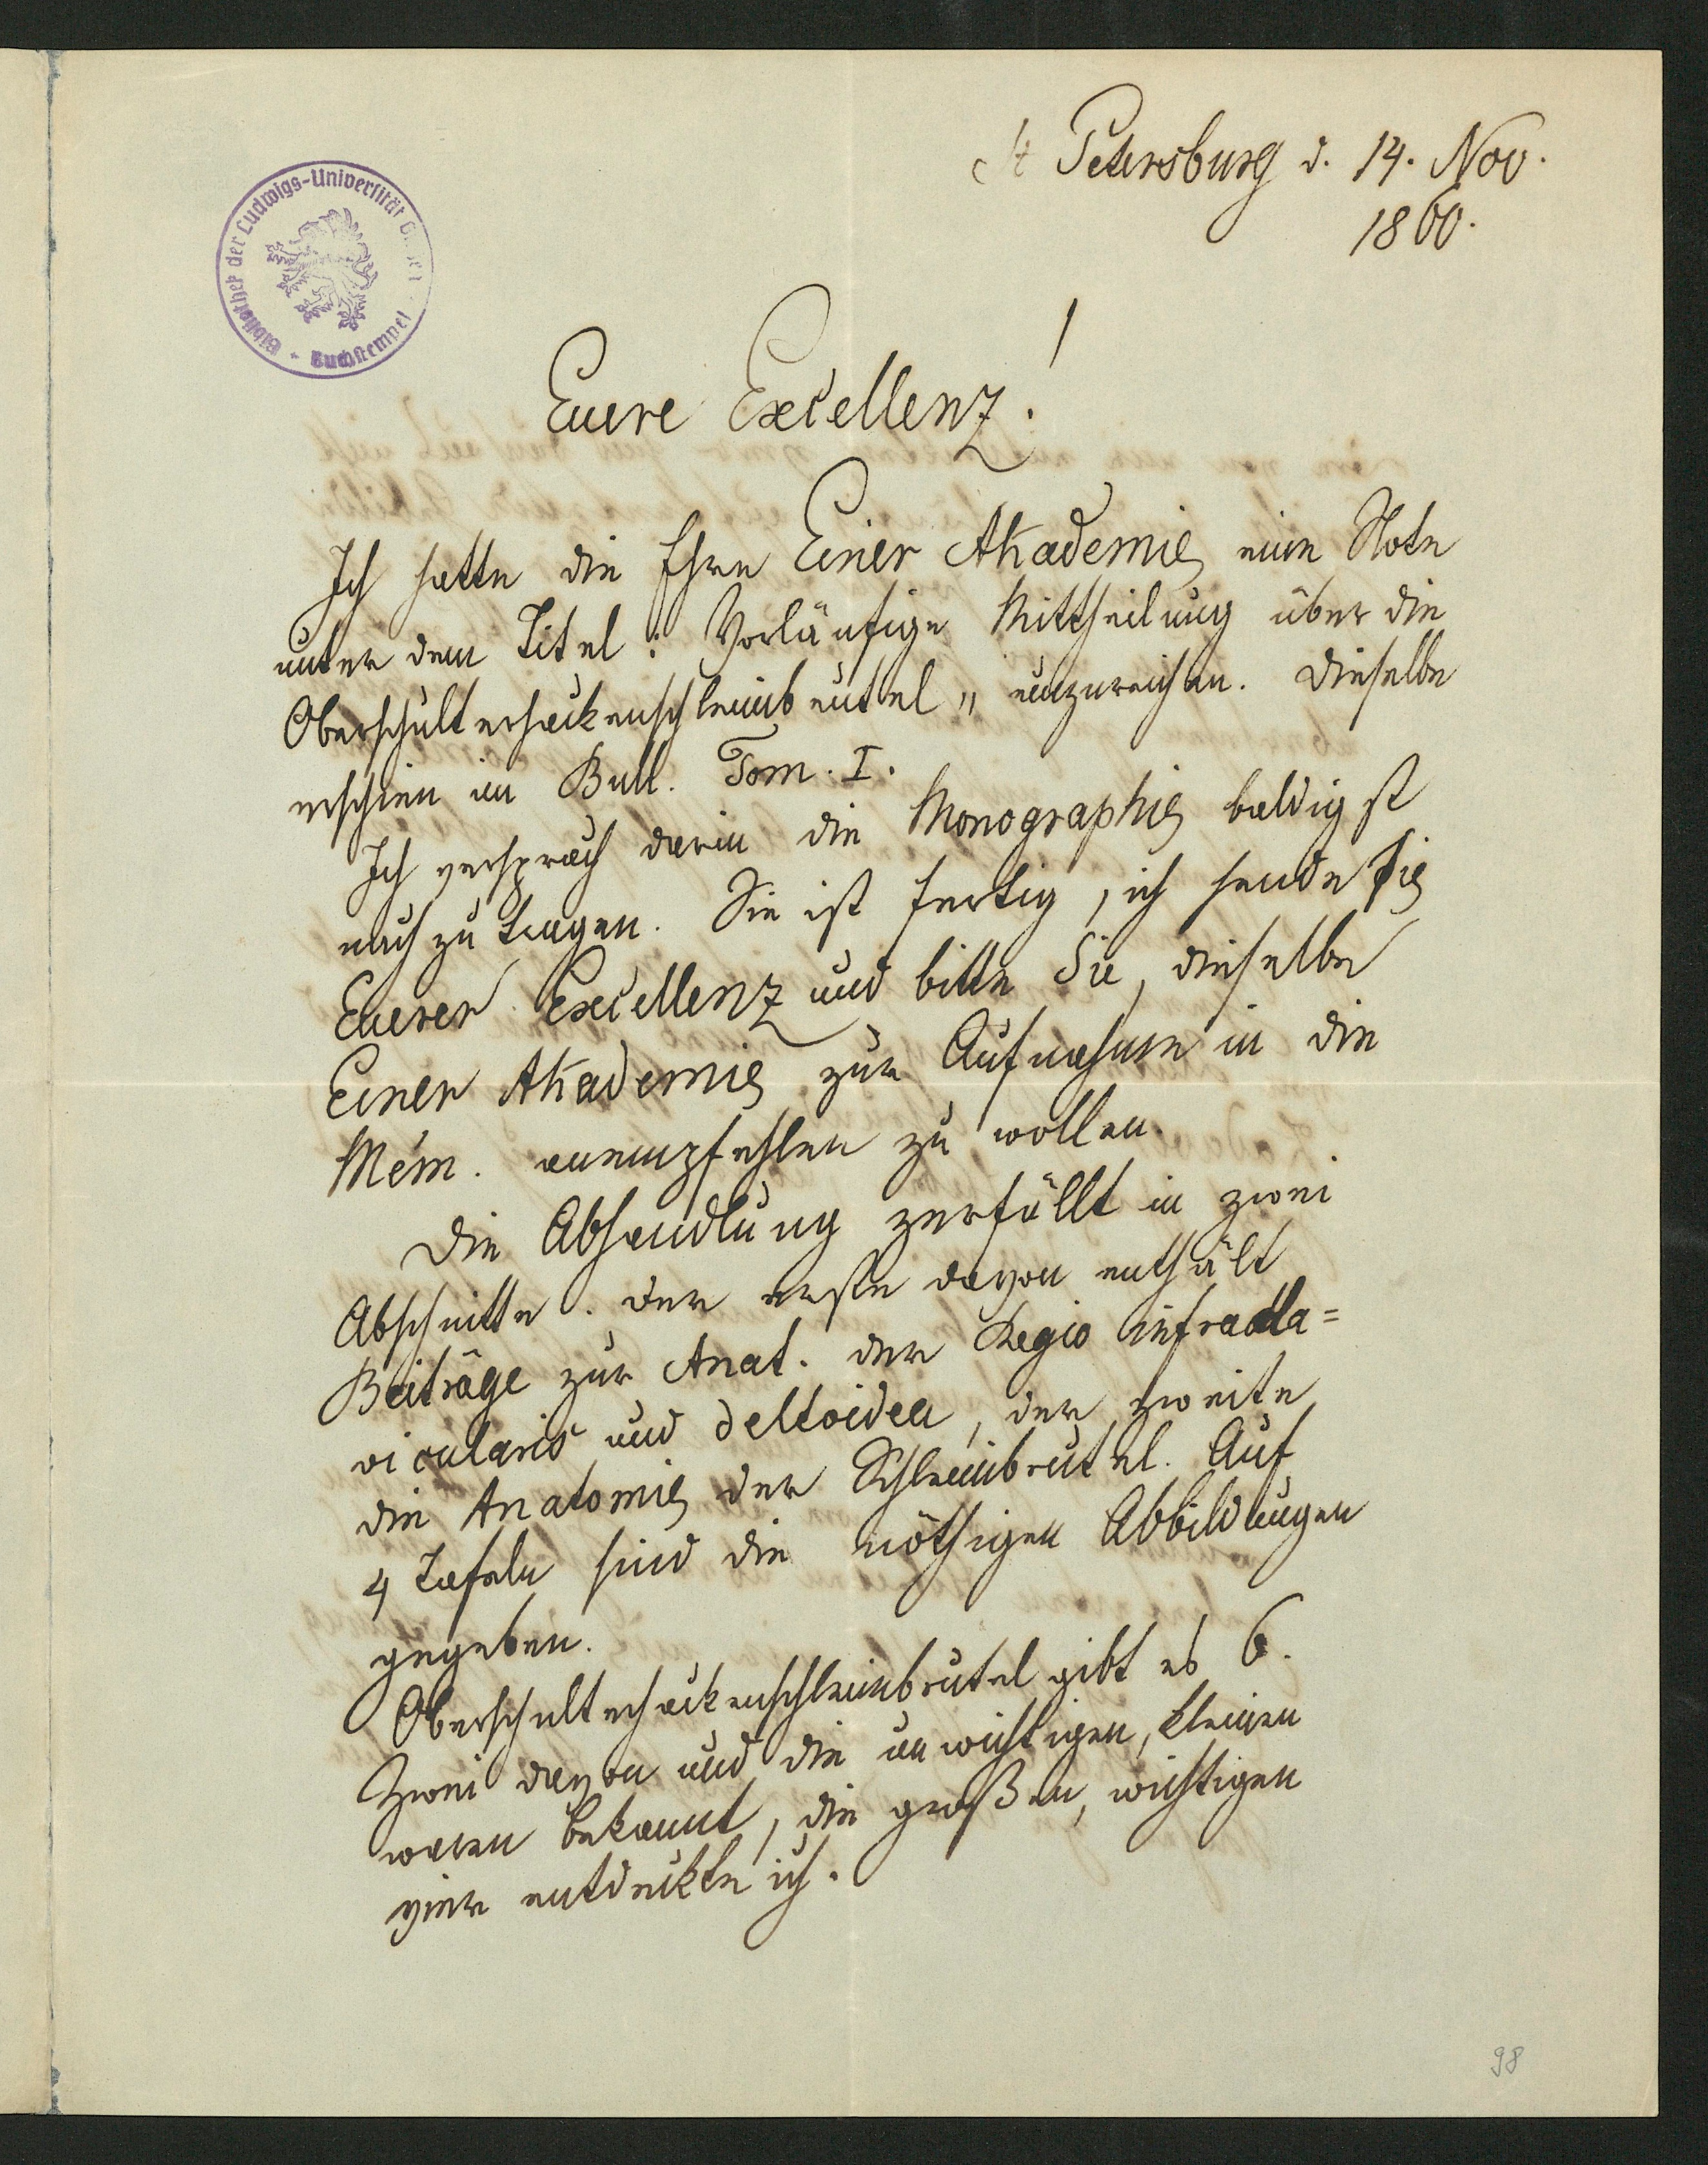 St Petersburg d. 14. Nov.
1860.
Bibliothek der Ludwigs-Universität Giessen
Buchstempel
Euere Excellenz!
Ich hatte die Ehre Einer Akademie eine Note
unter dem Titel: Vorläufige Mittheilung über die
Oberschulterhakenschleimbeutel" einzureichen. Dieselbe
erschien im Bull. Tom. I.
Ich versprach darin die Monographie baldigst
nach zu tragen. Sie ist fertig, ich sende sie
Euerer Excellenz und bitte Sie, dieselbe
Einer Akademie zur Aufnahme in die
Mém. anempfehlen zu wollen.
Die Abhandlung zerfällt in zwei
Abschnitte. Der erste davon enthält
Beiträge zur Anat. der Regio infracla=
vicularis und deltoidea, der zweite
die Anatomie der Schleimbeutel. Auf
4 Tafeln sind die nöthigen Abbildungen
gegeben.
Oberschulterhakenschleimbeutel gibt es 6.
Zwei davon und die unwichtigen, kleinen
waren bekannt, die großen, wichtigen
vier entdeckte ich.
98